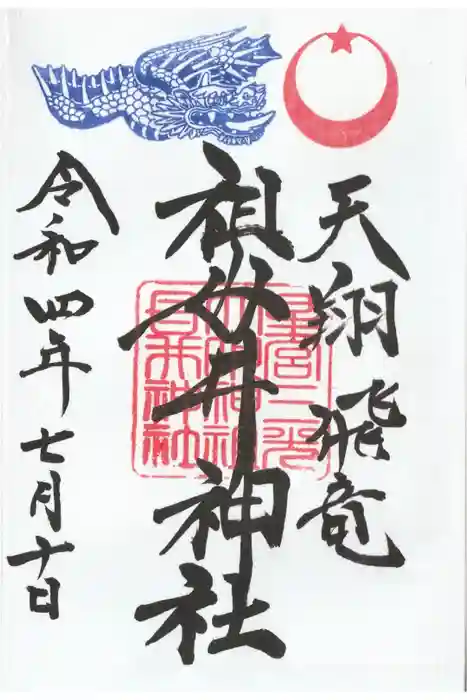 天翔飛竜
祖母井神社
令和四年七月十日